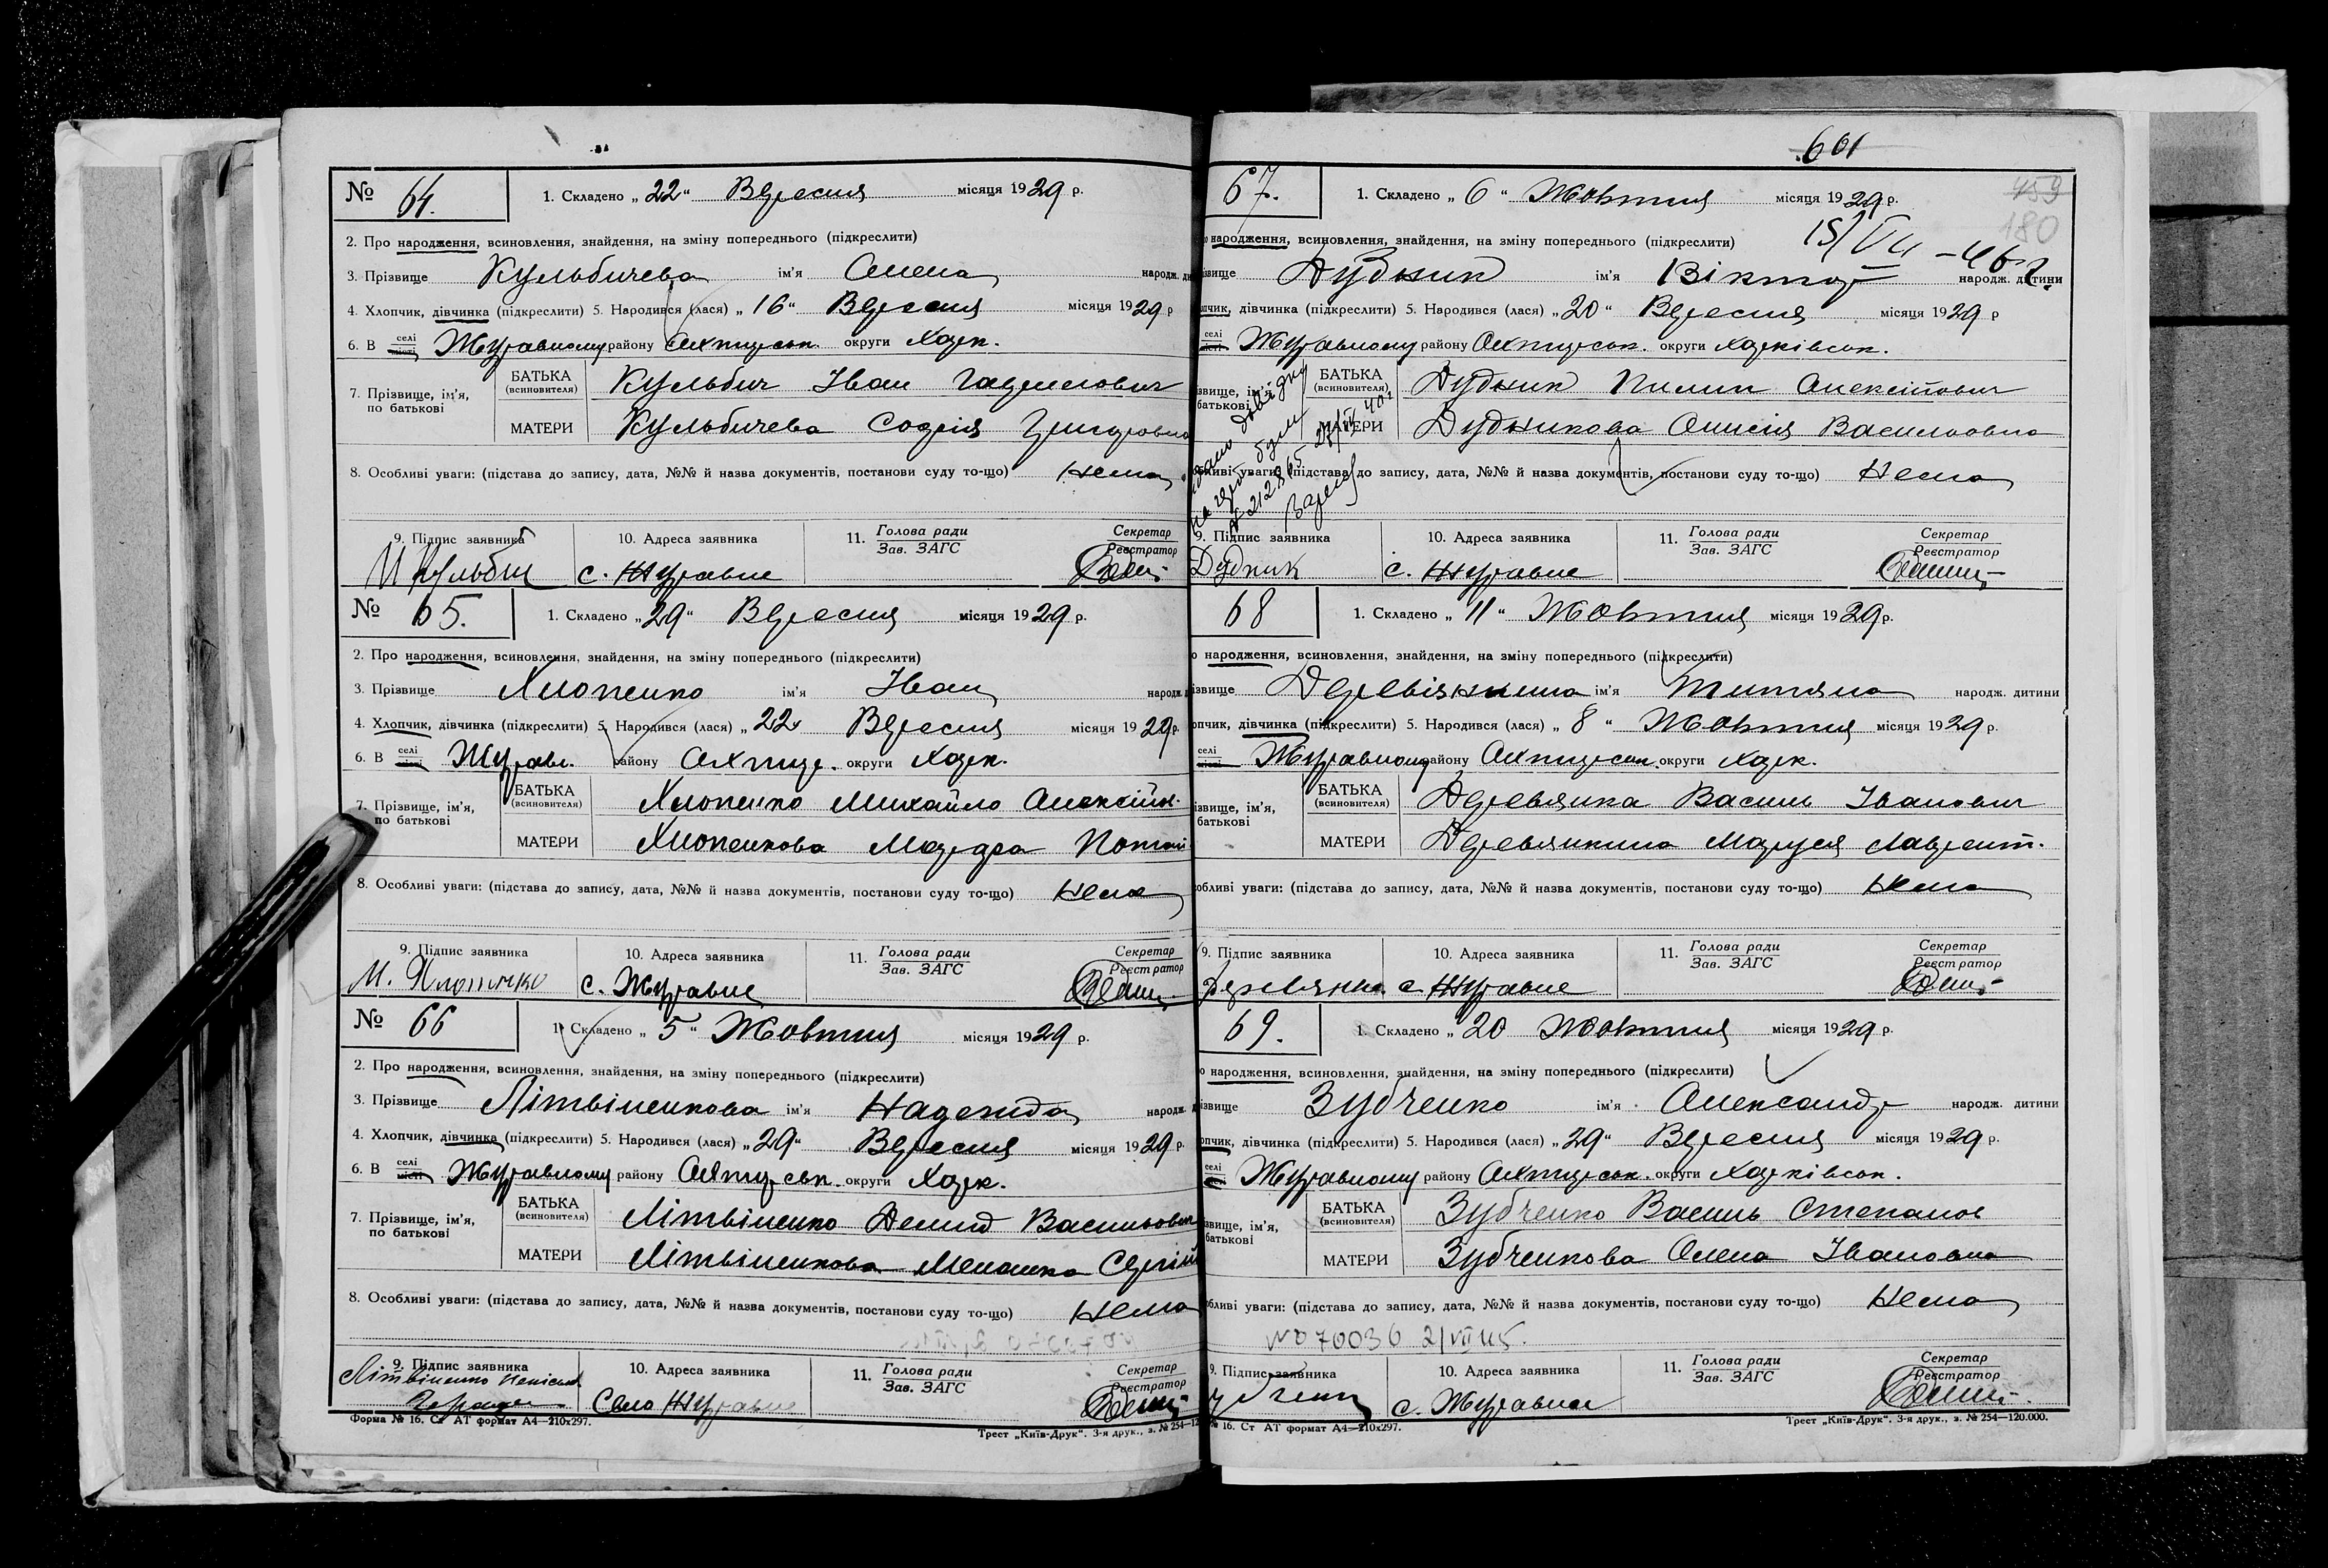 № 64. 1. Складено „22“ Вересня місяця 1929 р.
2. Про народження, всиновлення, знайдення, на зміну попереднього (підкреслити)
3. Прізвище Кульбичева ім'я Олена народж. ди
4. Хлопчик, дівчинка (підкреслити) 5. Народився (лася) „16“ Вересня місяця 1929 р
6. В селі місті Журавному району Охтирськ. округи Харк.
7. Прізвище, ім'я, по батькові
БАТЬКА (всиновителя) Кульбич Іван
МАТЕРИ Кульбичева Софія Григоровна
8. Особливі уваги: (підстава до запису, дата, №№ й назва документів, постанови суду то-що) Нема
9. Підпис заявника 10. Адреса заявника 11. Голова ради Зав. ЗАГС Секретар Реєстратор
И Кульбич с. Журавне
№ 65. 1. Складено „29“ Вересня місяця 1929 р.
2. Про народження, всиновлення, знайдення, на зміну попереднього (підкреслити)
3. Прізвище Хлопенко ім'я Іван народж. д
4. Хлопчик, дівчинка (підкреслити) 5. Народився (лася) „22“ Вересня місяця 1929 р.
6. В селі місті Журавн. району Охтир. округи Харк.
7. Прізвище, ім'я, по батькові
БАТЬКА (всиновителя) Хлопенко Михайло Олексійов.
МАТЕРИ Хлопенкова
8. Особливі уваги: (підстава до запису, дата, №№ й назва документів, постанови суду то-що) Нема
9. Підпис заявника 10. Адреса заявника 11. Голова ради Зав. ЗАГС Секретар Реєстратор
М. Хлопенко с. Журавне
№ 66 1. Складено „5“ Жовтня місяця 1929 р.
2. Про народження, всиновлення, знайдення, на зміну попереднього (підкреслити)
3. Прізвище Літвіненкова ім'я Надежда народж. д
4. Хлопчик, дівчинка (підкреслити) 5. Народився (лася) „29“ Вересня місяця 1929 р.
6. В селі місті Журавному району Охтирськ. округи Харк.
7. Прізвище, ім'я, по батькові
БАТЬКА (всиновителя) Літвіненко Демид Васильович
МАТЕРИ Літвіненкова Меланка Сергій
8. Особливі уваги: (підстава до запису, дата, №№ й назва документів, постанови суду то-що) Нема
9. Підпис заявника 10. Адреса заявника 11. Голова ради Зав. ЗАГС Секретар Реєстратор
Літвіненко
Село Журавне
Форма № 16. Ст АТ формат А4—210х297.
Трест „Київ-Друк“. 3-я друк., з. № 254—12
601
459
180
67. 1. Складено „6“ Жовтня місяця 1929 р.
о народження, всиновлення, знайдення, на зміну попереднього (підкреслити) 15/VII-46 г
ізвище Дудник ім'я Віктор народж. дитини
пчик, дівчинка (підкреслити) 5. Народився (лася) „20“ Вересня місяця 1929 р
селі місті Журавному району Охтирськ. округи Харківськ.
звище, ім'я, батькові
БАТЬКА (всиновителя) Дудник Пилип Олексійович
МАТЕРИ Дудникова Онисія Васильовна
обливі уваги: (підстава до запису, дата, №№ й назва документів, постанови суду то-що) Нема
9. Підпис заявника 10. Адреса заявника 11. Голова ради Зав. ЗАГС Секретар Реєстратор
Дудник с. Журавне
68 1. Складено „11“ Жовтня місяця 1929 р.
о народження, всиновлення, знайдення, на зміну попереднього (підкреслити)
ізвище Деревянкина ім'я Титяна народж. дитини
опчик, дівчинка (підкреслити) 5. Народився (лася) „8“ Жовтня місяця 1929 р.
селі місті Журавному району Охтирськ. округи Харк.
ізвище, ім'я, батькові
БАТЬКА (всиновителя) Деревянка Василь Іванович
МАТЕРИ Деревянкина Маруся Лаврент.
обливі уваги: (підстава до запису, дата, №№ й назва документів, постанови суду то-що) Нема
9. Підпис заявника 10. Адреса заявника 11. Голова ради Зав. ЗАГС Секретар Реєстратор
Деревянка с. Журавне
69. 1. Складено „20 Жовтня місяця 1929 р.
о народження, всиновлення, знайдення, на зміну попереднього (підкреслити)
ізвище Зубченко ім'я Олександр народж. дитини
опчик, дівчинка (підкреслити) 5. Народився (лася) „29“ Вересня місяця 1929 р.
селі місті Журавному району Охтирськ. округи Харківськ.
звище, ім'я, батькові
БАТЬКА (всиновителя) Зубченко Василь Степанов
МАТЕРИ Зубченкова Олена Івановна
обливі уваги: (підстава до запису, дата, №№ й назва документів, постанови суду то-що) Нема
№ 070036 2/VII 45.
9. Підпис заявника 10. Адреса заявника 11. Голова ради Зав. ЗАГС Секретар Реєстратор
с. Журавне
№ 16. Ст АТ формат А4—210х297.
Трест „Київ-Друк“. 3-я друк., з. № 254—120.000.